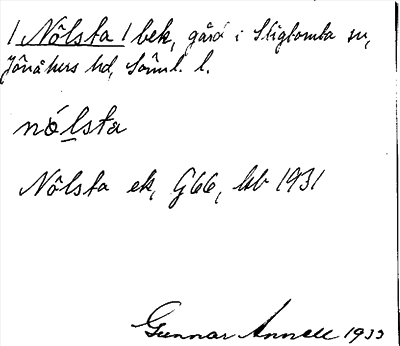 / Nôlsta / bek, gård i Stigtomta sn,
Jönåkers hd, Söml. l.
nólsta
Nôlsta ek, G66, kb 1931
Gunnar Annell 1933